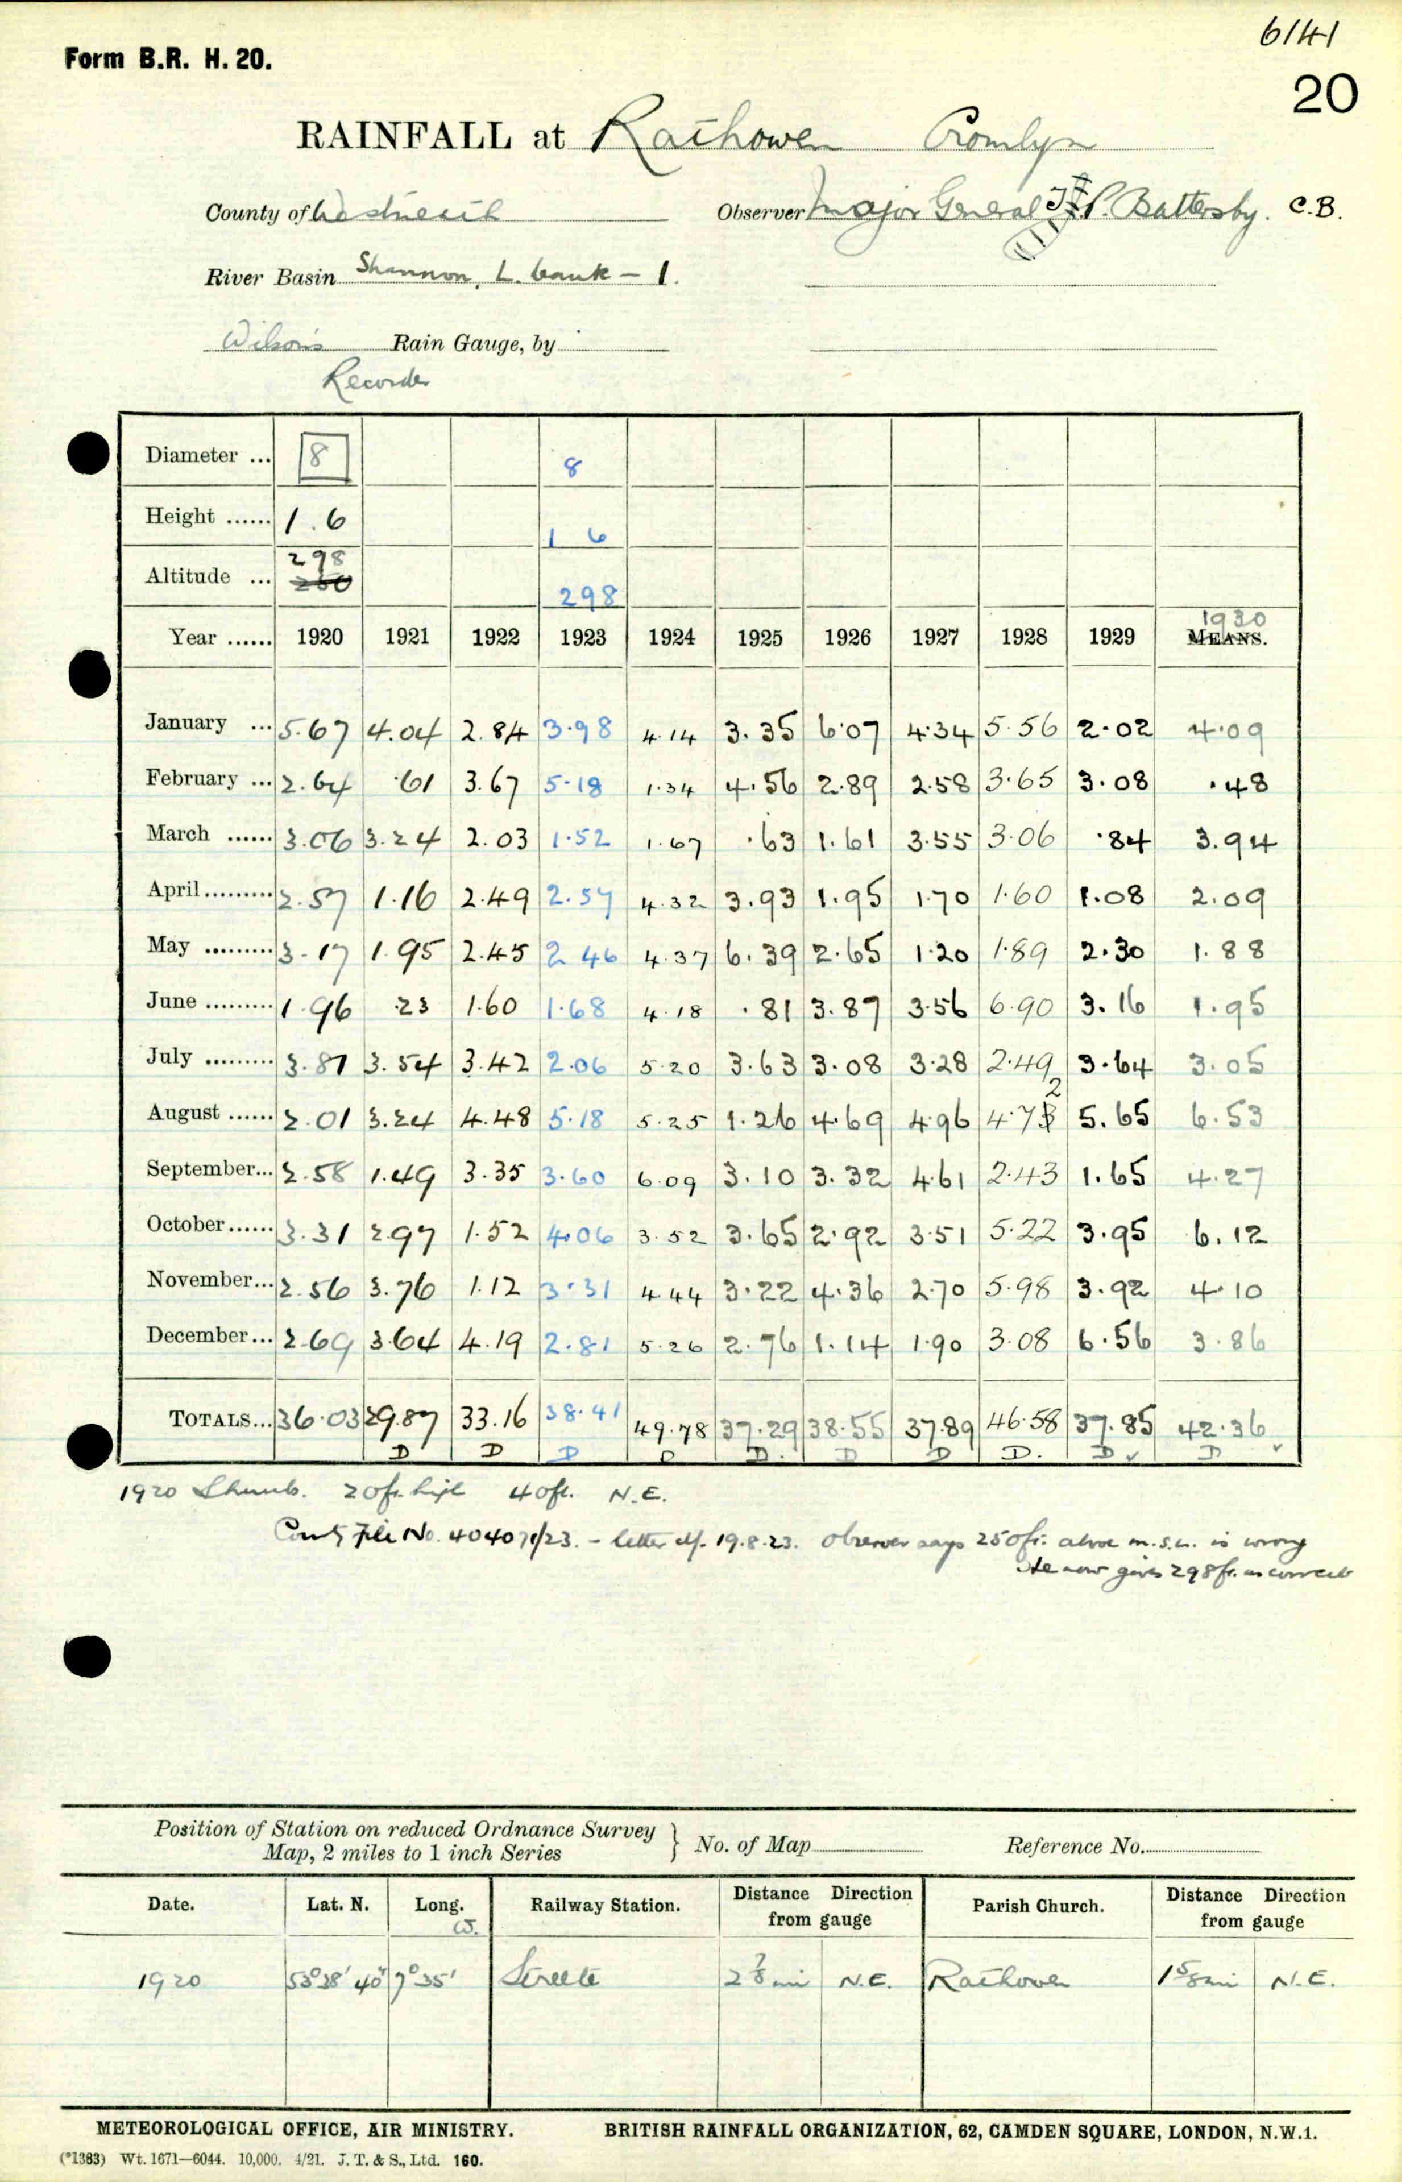 6141
Form B.R. H. 20.
20
RAINFALL at Rathowen Cromlyn
County of Westmeath Observer Major General J.P. Battersby. C.B.
River Basin Shannon, L. bank - 1.
Wilson's Rain Gauge, by
Recorder
Diameter ... 8 8
Height ...... 1.6 1 6
Altitude ... 298 250 298
1930
Year ...... 1920 1921 1922 1923 1924 1925 1926 1927 1928 1929 MEANS.
January ... 5.67 4.04 2.84 3.98 4.14 3.35 6.07 4.34 5.56 2.02 4.09
February ... 2.64 .61 3.67 5.18 1.34 4.56 2.89 2.58 3.65 3.08 .48
March ...... 3.06 3.24 2.03 1.52 1.67 .63 1.61 3.55 3.06 .84 3.94
April ......... 2.57 1.16 2.49 2.57 4.32 3.93 1.95 1.70 1.60 1.08 2.09
May ......... 3.17 1.95 2.45 2 46 4.37 6.39 2.65 1.20 1.89 2.30 1.88
June ......... 1.96 .23 1.60 1.68 4.18 .81 3.87 3.56 6.90 3.16 1.95
July ......... 3.81 3.54 3.42 2.06 5.20 3.63 3.08 3.28 2.49 3.64 3.05
August ...... 2.01 3.24 4.48 5.18 5.25 1.26 4.69 4.96 4.72 5.65 6.53
September... 2.58 1.49 3.35 3.60 6.09 3.10 3.32 4.61 2.43 1.65 4.27
October...... 3.31 2.97 1.52 4.06 3.52 3.65 2.92 3.51 5.22 3.95 6.12
November... 2.56 3.76 1.12 3.31 4.44 3.22 4.36 2.70 5.98 3.92 4.10
December... 2.69 3.64 4.19 2.81 5.26 2.76 1.14 1.90 3.08 6.56 3.86
TOTALS... 36.03 29.87 33.16 38.41 49.78 37.29 38.55 37.89 46.58 37.85 42.36
D D D D D. D D D. D ✓ D ✓
1920 Shrub. 20ft. high 40ft. N.E.
File No. 404071/23. - letter of 19.8.23. Observer says 250ft. above m.s.l. is wrong
He now gives 298ft. as correct
Position of Station on reduced Ordnance Survey
Map, 2 miles to 1 inch Series } No. of Map Reference No.
Date. Lat. N. Long. W. Railway Station. Distance Direction from gauge Parish Church. Distance Direction from gauge
1920 53°38'40" 7°35' Streete 2 7/8 mi N.E. Rathowen 1 5/8 mi N.E.
METEOROLOGICAL OFFICE, AIR MINISTRY. BRITISH RAINFALL ORGANIZATION, 62, CAMDEN SQUARE, LONDON, N.W.1.
(*1383) Wt. 1671—6044. 10,000. 4/21. J. T. & S., Ltd. 160.